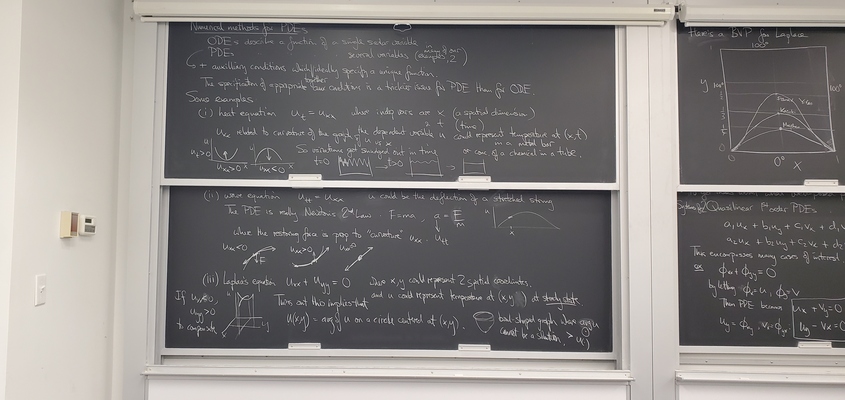 Numerical methods for PDEs
ODEs describe a function of a single scalar variable
PDEs several variables (many of our examples, 2)
+ auxiliary conditions which ideally specify a unique function.
The specification of appropriate conditions is a trickier issue for PDE than for ODE.
Some examples
(i) heat equation u_t = u_xx where indep vars are x (a spatial dimension)
t (time)
u_xx related to curvature of the graph of u vs x the dependent variable u could represent temperature at (x,t)
in a metal bar
So variations get smudged out in time or conc of a chemical in a tube.
u_t>0 u_xx>0 x u_xx<0 t=0 t>0
(ii) wave equation u_tt = u_xx u could be the deflection of a stretched string
The PDE is really Newton's 2nd Law F=ma, a = F/m
where the restoring force is prop to "curvature" u_xx. u_tt
u_xx<0 u_xx>0 u_xx=0
(iii) Laplace's equation u_xx + u_yy = 0 Here x,y could represent 2 spatial coordinates.
and u could represent temperature at (x,y) at steady state
If u_xx<0, u_yy>0 to compensate
Turns out this implies that
u(x,y) = avg of u on a circle centered at (x,y).
bowl-shaped graph when avg u > u
cannot be a solution.
Here's a BVP for Laplace
100°
y 100° 100°
0 0° x
Quasilinear 1st order PDEs
a_1 u_x + b_1 u_y + c_1 v_x + d_1
a_2 u_x + b_2 u_y + c_2 v_x + d_2
This encompasses many cases of interest
ex φ_xx + φ_yy = 0
by letting φ_x = u, φ_y = v
Then PDE becomes u_x + v_y = 0
u_y = φ_xy, v_x = φ_yx u_y - v_x = 0